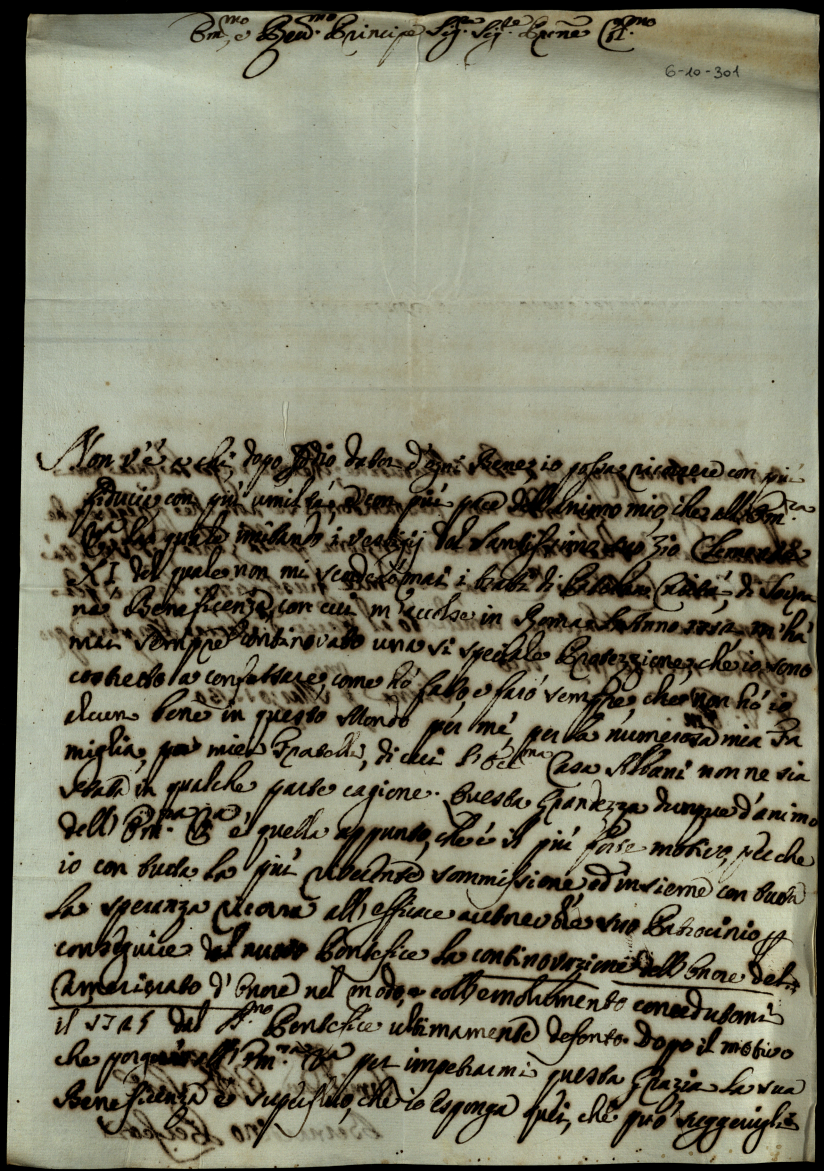 Em.mo e Rev.mo Principe Sig.re Sig.re Prone C.mo
6-10-301
Non v'è a chi, dopo Iddio dator d'ogni Bene, io possa ricorrere con più
fiducia con più umiltà, e con più pace dell'Animo mio, che all'Em.za
V.ra la quale imitando i vestigij del Santissimo suo Zio Clemente
XI del quale non mi scorderò mai i tratti di Carità, di
na Beneficenza, con cui m'accolse in Roma l'Anno m'hà
mai sempre continovato una sì speciale Protezzione, che io sono
costretto a confessare, come hò fatto, e farò sempre, che non hò io
alcun bene in questo Mondo per mè, per la numerosa mia Fa
miglia, per miei Fratelli, di cui l'Ecc.ma Casa Albani non ne sia
stata in qualche parte cagione. Questa Grandezza dunque d'animo
dell'Em.za V.ra è quella appunto, che è il più forte motivo, perche
io con tutta la più riverente sommissione ed insieme con tutta
la speranza ricorra all'efficace autorevole suo Patrocinio p
conseguire dal nuovo Pontefice la continovazione dell'Onore del
Camerierato d'Onore nel modo, e coll'emolumento concedutomi
il 1725 dal Pontefice ultimamente defonto. Dopo il motivo
che porge all'Em.za V.ra per impetrarmi questa Grazia la sua
Beneficenza è superfluo, che io esponga quei, che può suggerirgli